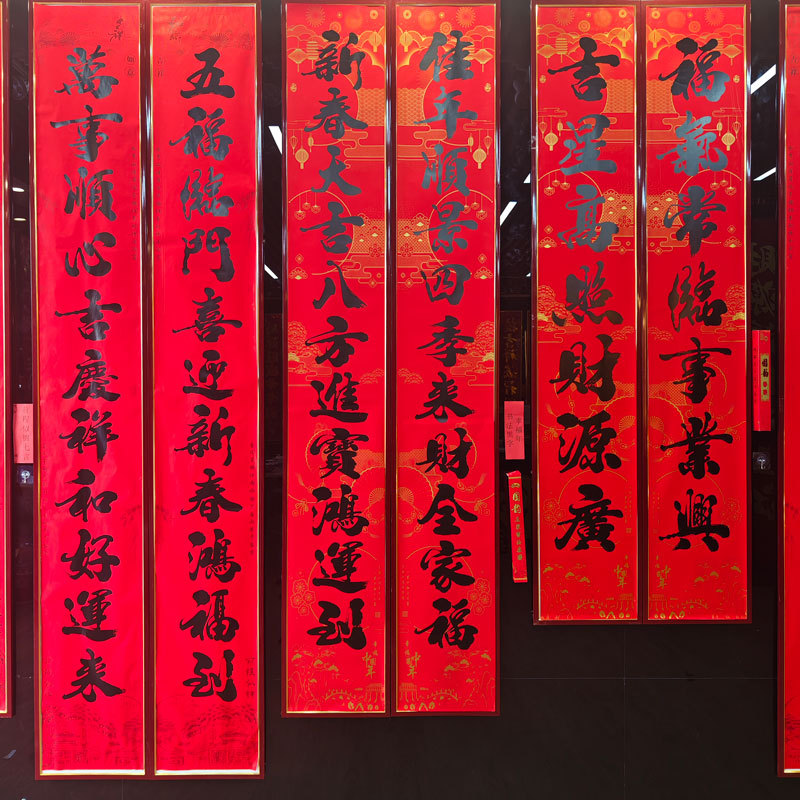 福氣常臨事業興
吉星高照財源廣
佳年順景四季来財全家福
新春大吉八方進寶鴻運到
五福臨門喜迎新春鴻福到
萬事順心吉慶祥和好運来